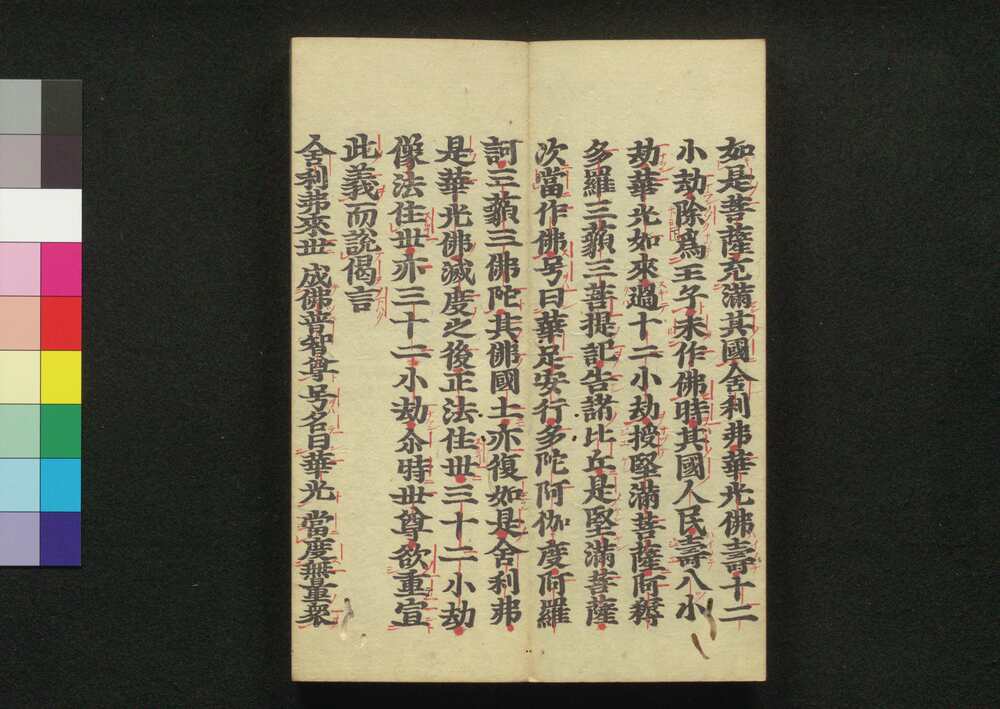 如是菩薩充滿其國舍利弗華光佛壽十二
小劫除爲王子未作佛時其國人民壽八小
劫華光如來過十二小劫授堅滿菩薩阿耨
多羅三藐三菩提記告諸比丘是堅滿菩薩
次當作佛号曰華足安行多陀阿伽度阿羅
訶三藐三佛陀其佛國土亦復如是舍利弗
是華光佛滅度之後正法住世三十二小劫
像法住世亦三十二小劫尒時世尊欲重宣
此義而說偈言
舍利弗來世 成佛普智尊 号名曰華光 當度無量衆